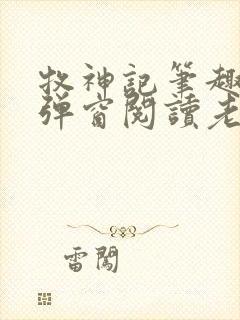 牧神記筆趣
彈窗閱讀老
雷闖